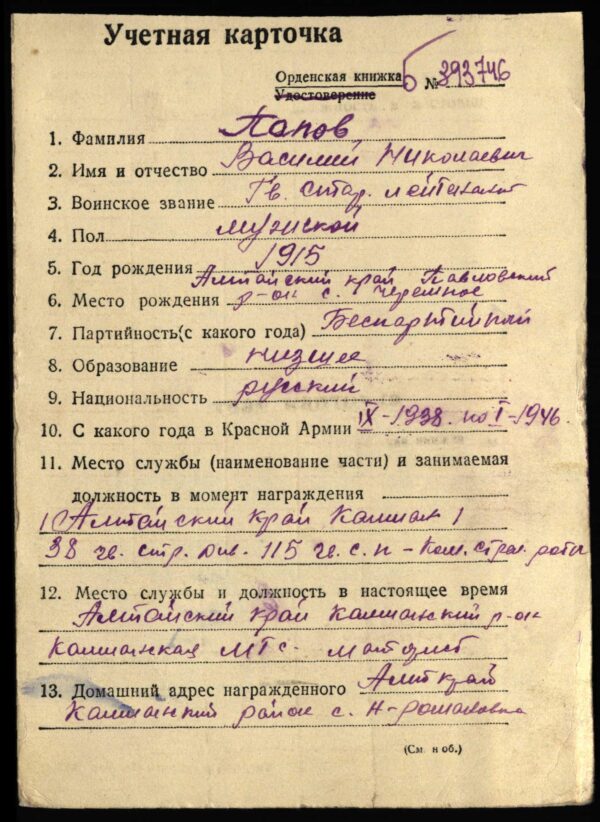 Учетная карточка
Орденская книжка Б № 393746
Удостоверение
1. Фамилия Папов
2. Имя и отчество Василий Николаевич
3. Воинское звание Гв. стар. лейтенант
4. Пол мужской
5. Год рождения 1915
Алтайский край Павловский
6. Место рождения р-он с. Черемное
7. Партийность (с какого года) Беспартийный
8. Образование низшее
9. Национальность русский
10. С какого года в Красной Армии IX-1938. по I-1946.
11. Место службы (наименование части) и занимаемая
должность в момент награждения
Алтайский край
38 гв. стр. див. 115 гв. с. п - Ком. стрел. роты
12. Место службы и должность в настоящее время
Алтайский край р-он
МТС.
13. Домашний адрес награжденного Алткрай
район с. Н-Романовка
(См. н об.)